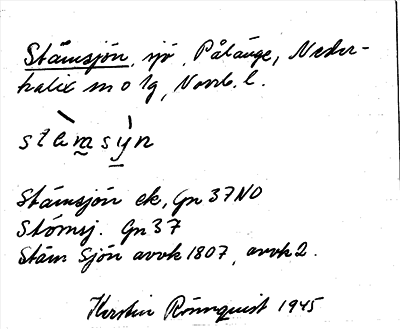 Stämsjön, sjö, Pålänge, Neder-
kalix sn o lg, Norrb. l.
stèmsỳn
Stämsjön ek, Gn 37NO
Stömsj. Gn 37
Stäm Sjön avvk 1807, avvk 2.
Kerstin Rönnquist 1945